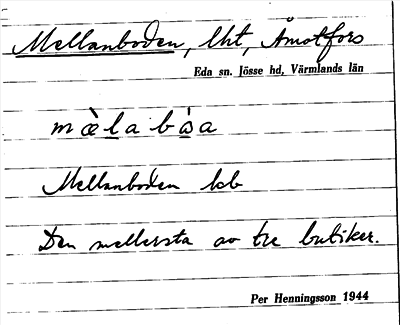 Mellanboden, lht, Åmotfors
Eda sn. Jösse hd, Värmlands län
mæ̀la bòa
Mellanboden lsb
Den mellersta av tre butiker.
Per Henningsson 1944